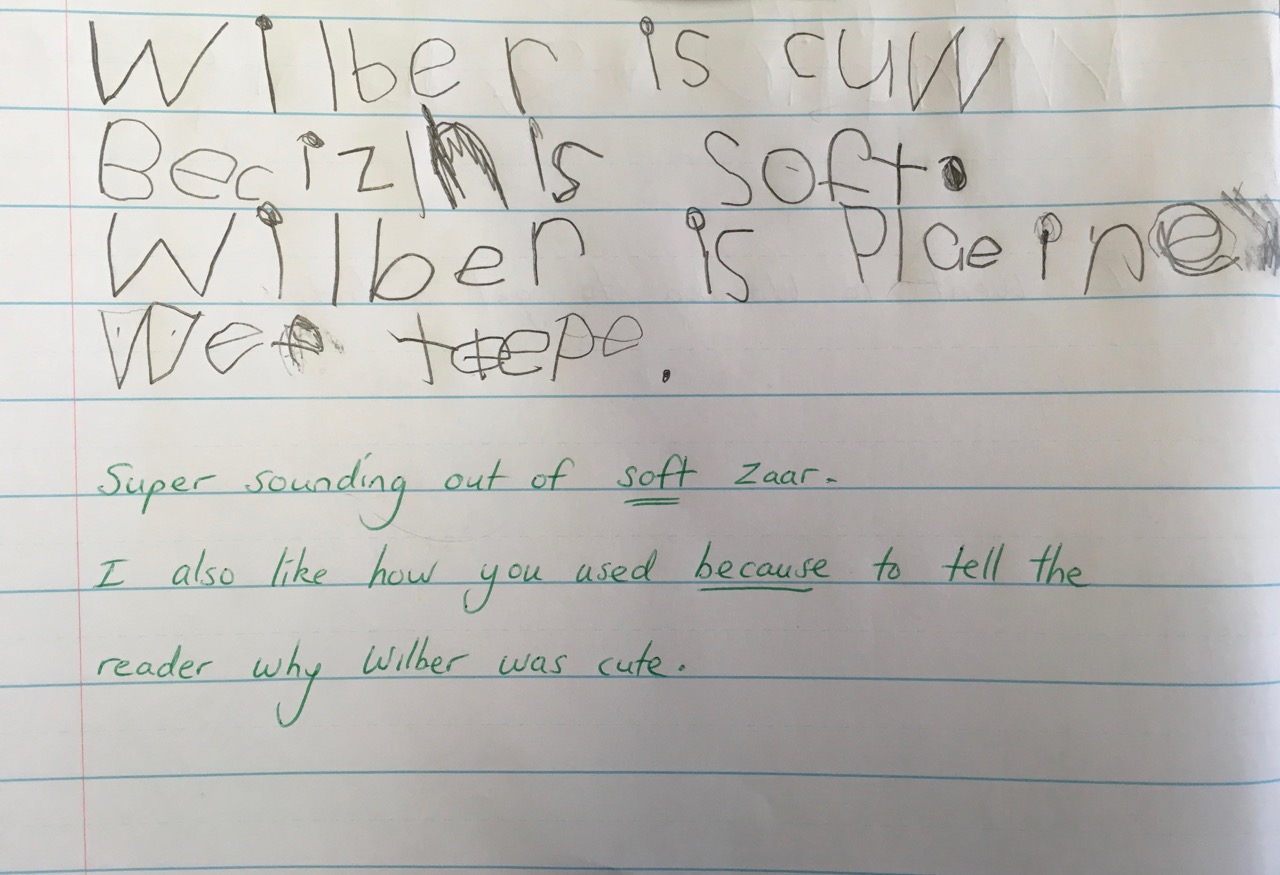 Wilber is cuw
Beciz is soft.
Wilber is Plaeine
We teepe.
Super sounding out of soft Zaar.
I also like how you used because to tell the
reader why Wilber was cute.